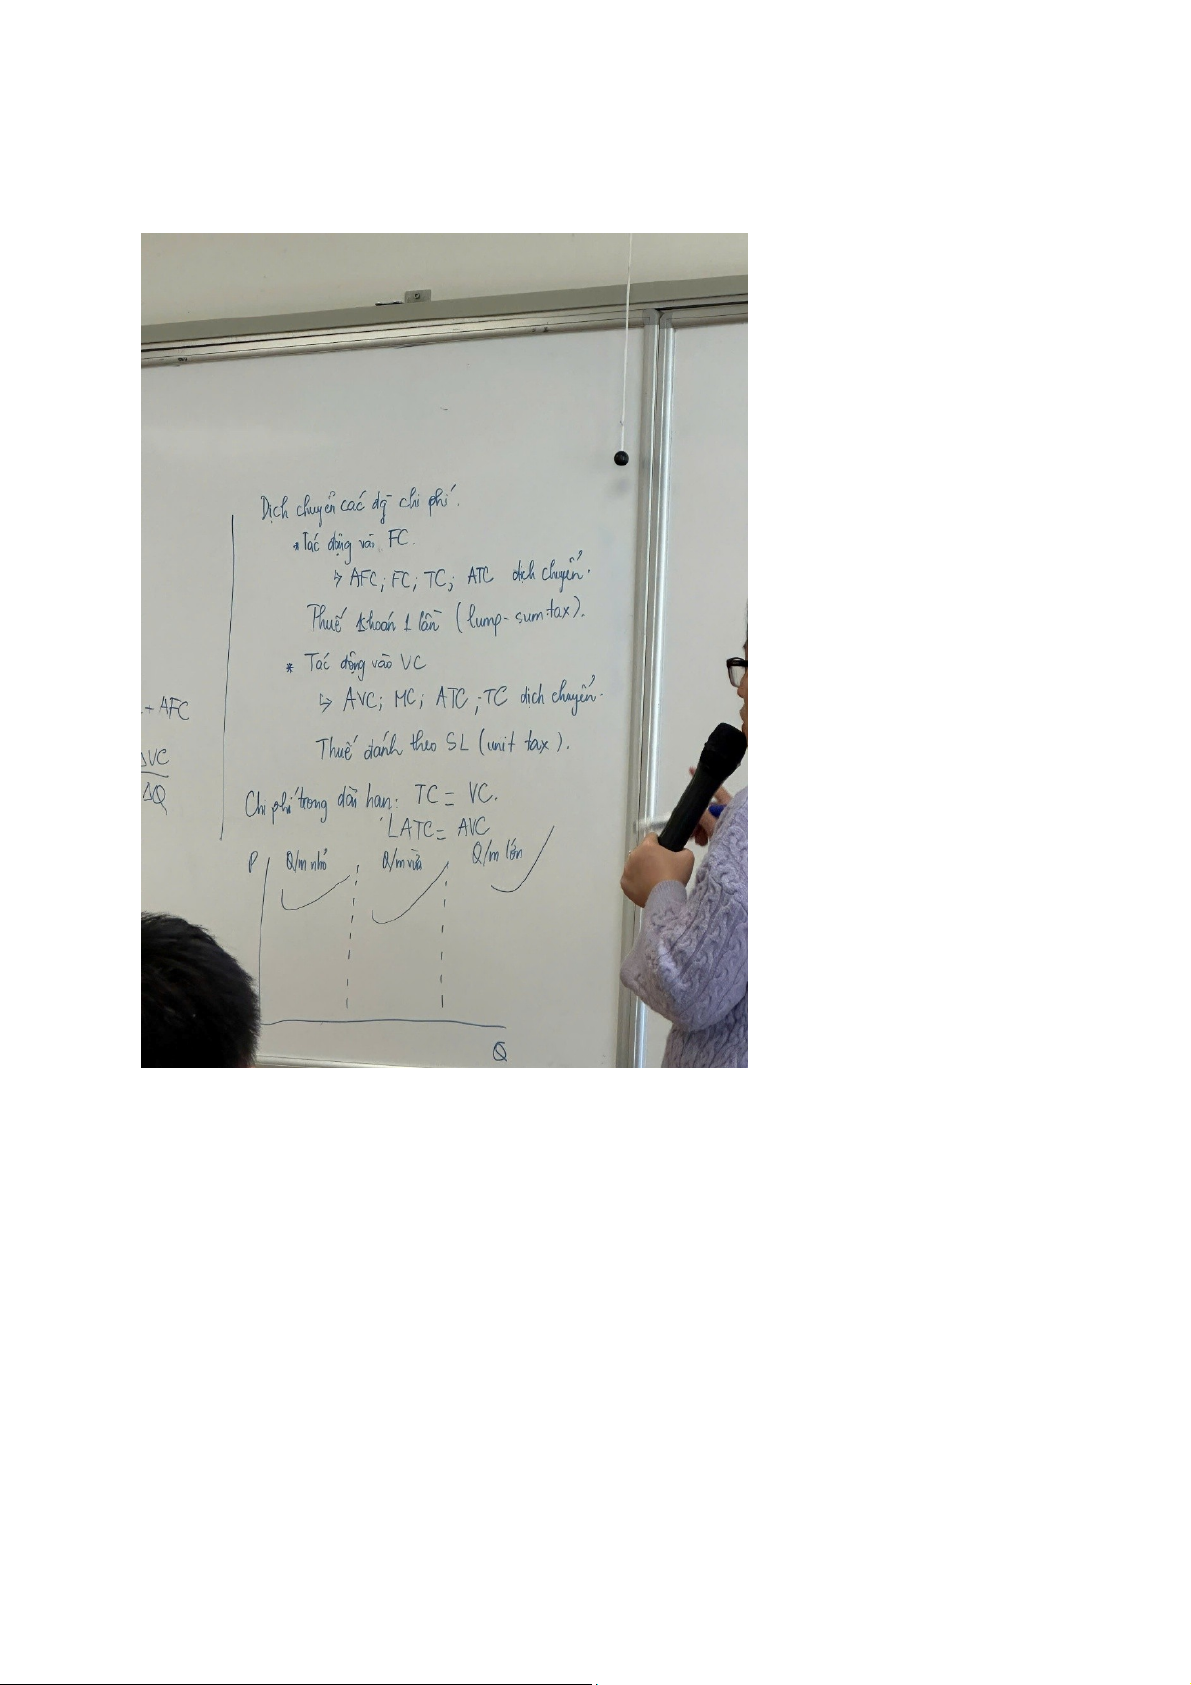 Dịch chuyển các đg chi phí.
* Tác động vào FC.
↳ AFC; FC; TC; ATC dịch chuyển.
Thuế khoán 1 lần (lump-sum tax).
* Tác động vào VC
↳ AVC; MC; ATC; TC dịch chuyển.
Thuế đánh theo SL (unit tax).
+ AFC
ΔVC
ΔQ
Chi phí trong dài hạn: TC = VC.
LATC = AVC
P Q/m nhỏ Q/m vừa Q/m lớn
Q